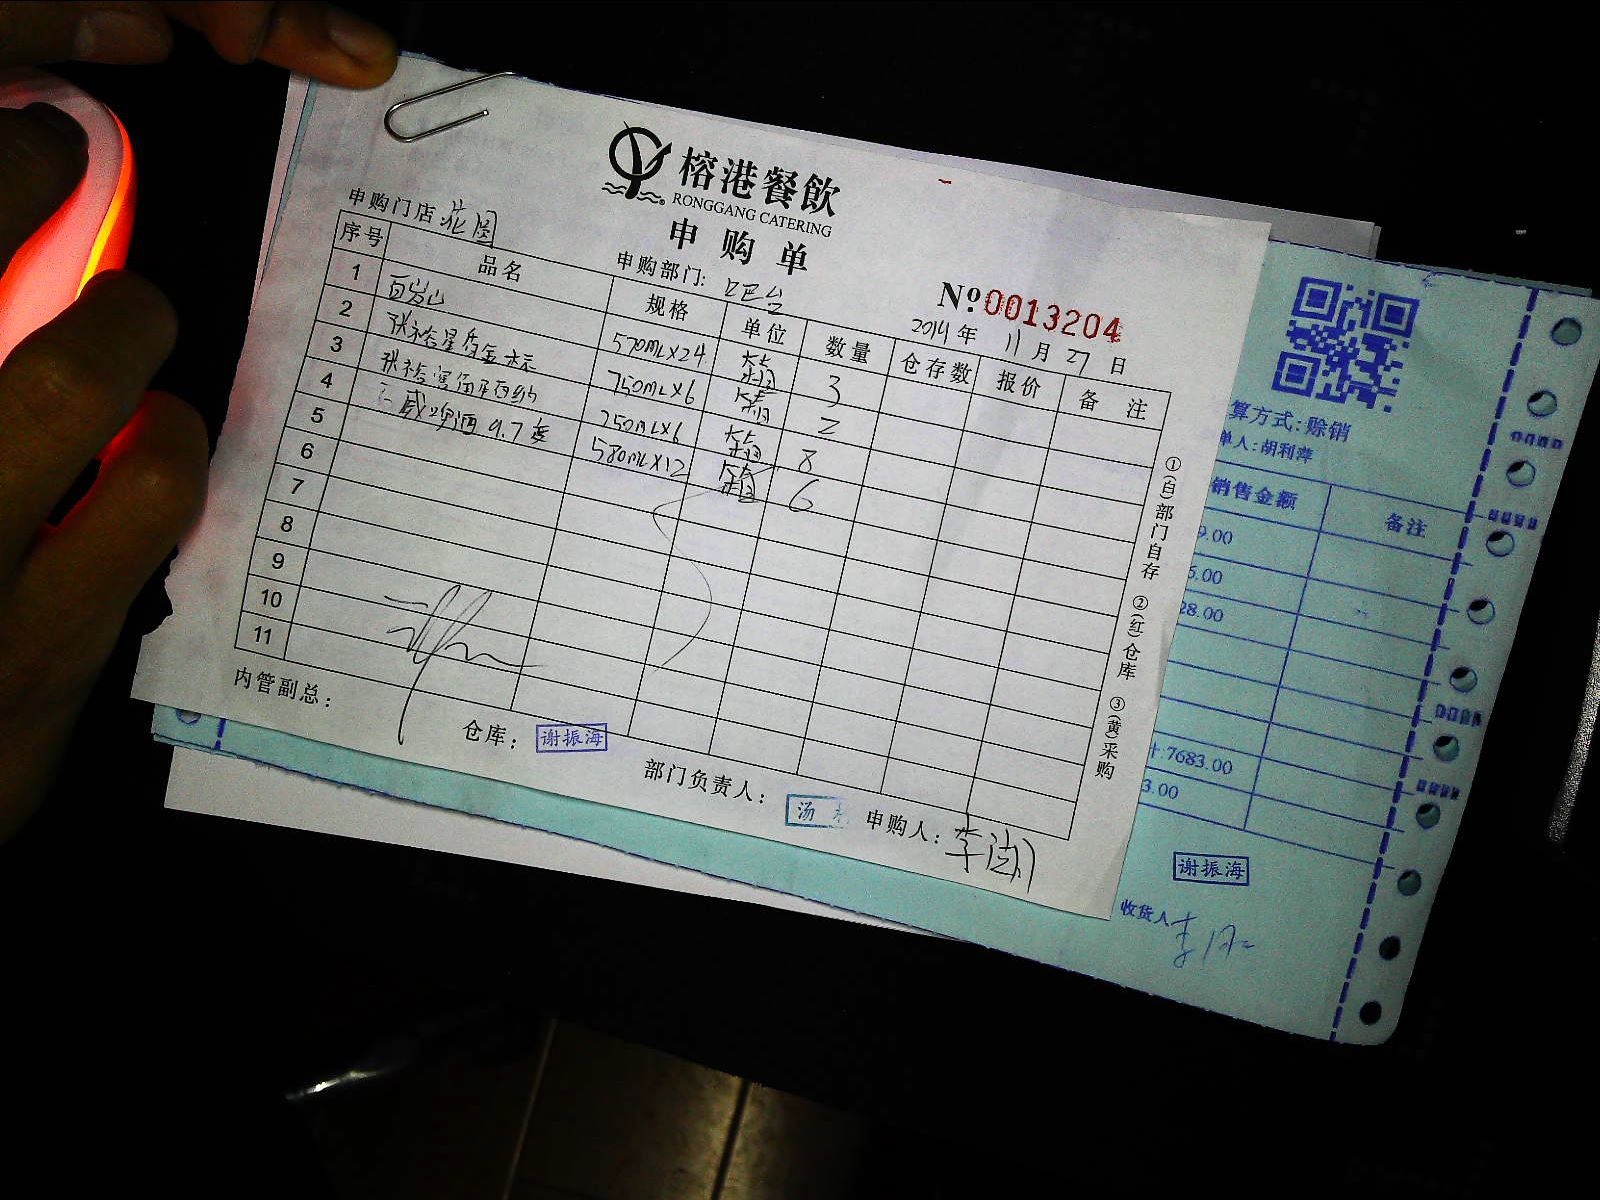 榕港餐飲
RONGGANG CATERING
申购单
申购门店:花园
申购部门:吧台
№0013204
2014年11月27日
序号 品名 规格 单位 数量 仓存数 报价 备注
1 百岁山 570ML×24 箱 3
2 张裕星座金标 750ML×6 箱 2
3 张裕 750ML×6 箱 8
4 威啤酒 9.7度 580ML×12 箱 6
5
6
7
8
9
10
11
①(白)部门自存 ②(红)仓库 ③(黄)采购
内管副总:
仓库: 谢振海
部门负责人: 汤
申购人: 李
算方式:赊销
单人:胡利萍
销售金额 备注
9.00
6.00
28.00
7683.00
3.00
谢振海
收货人 李